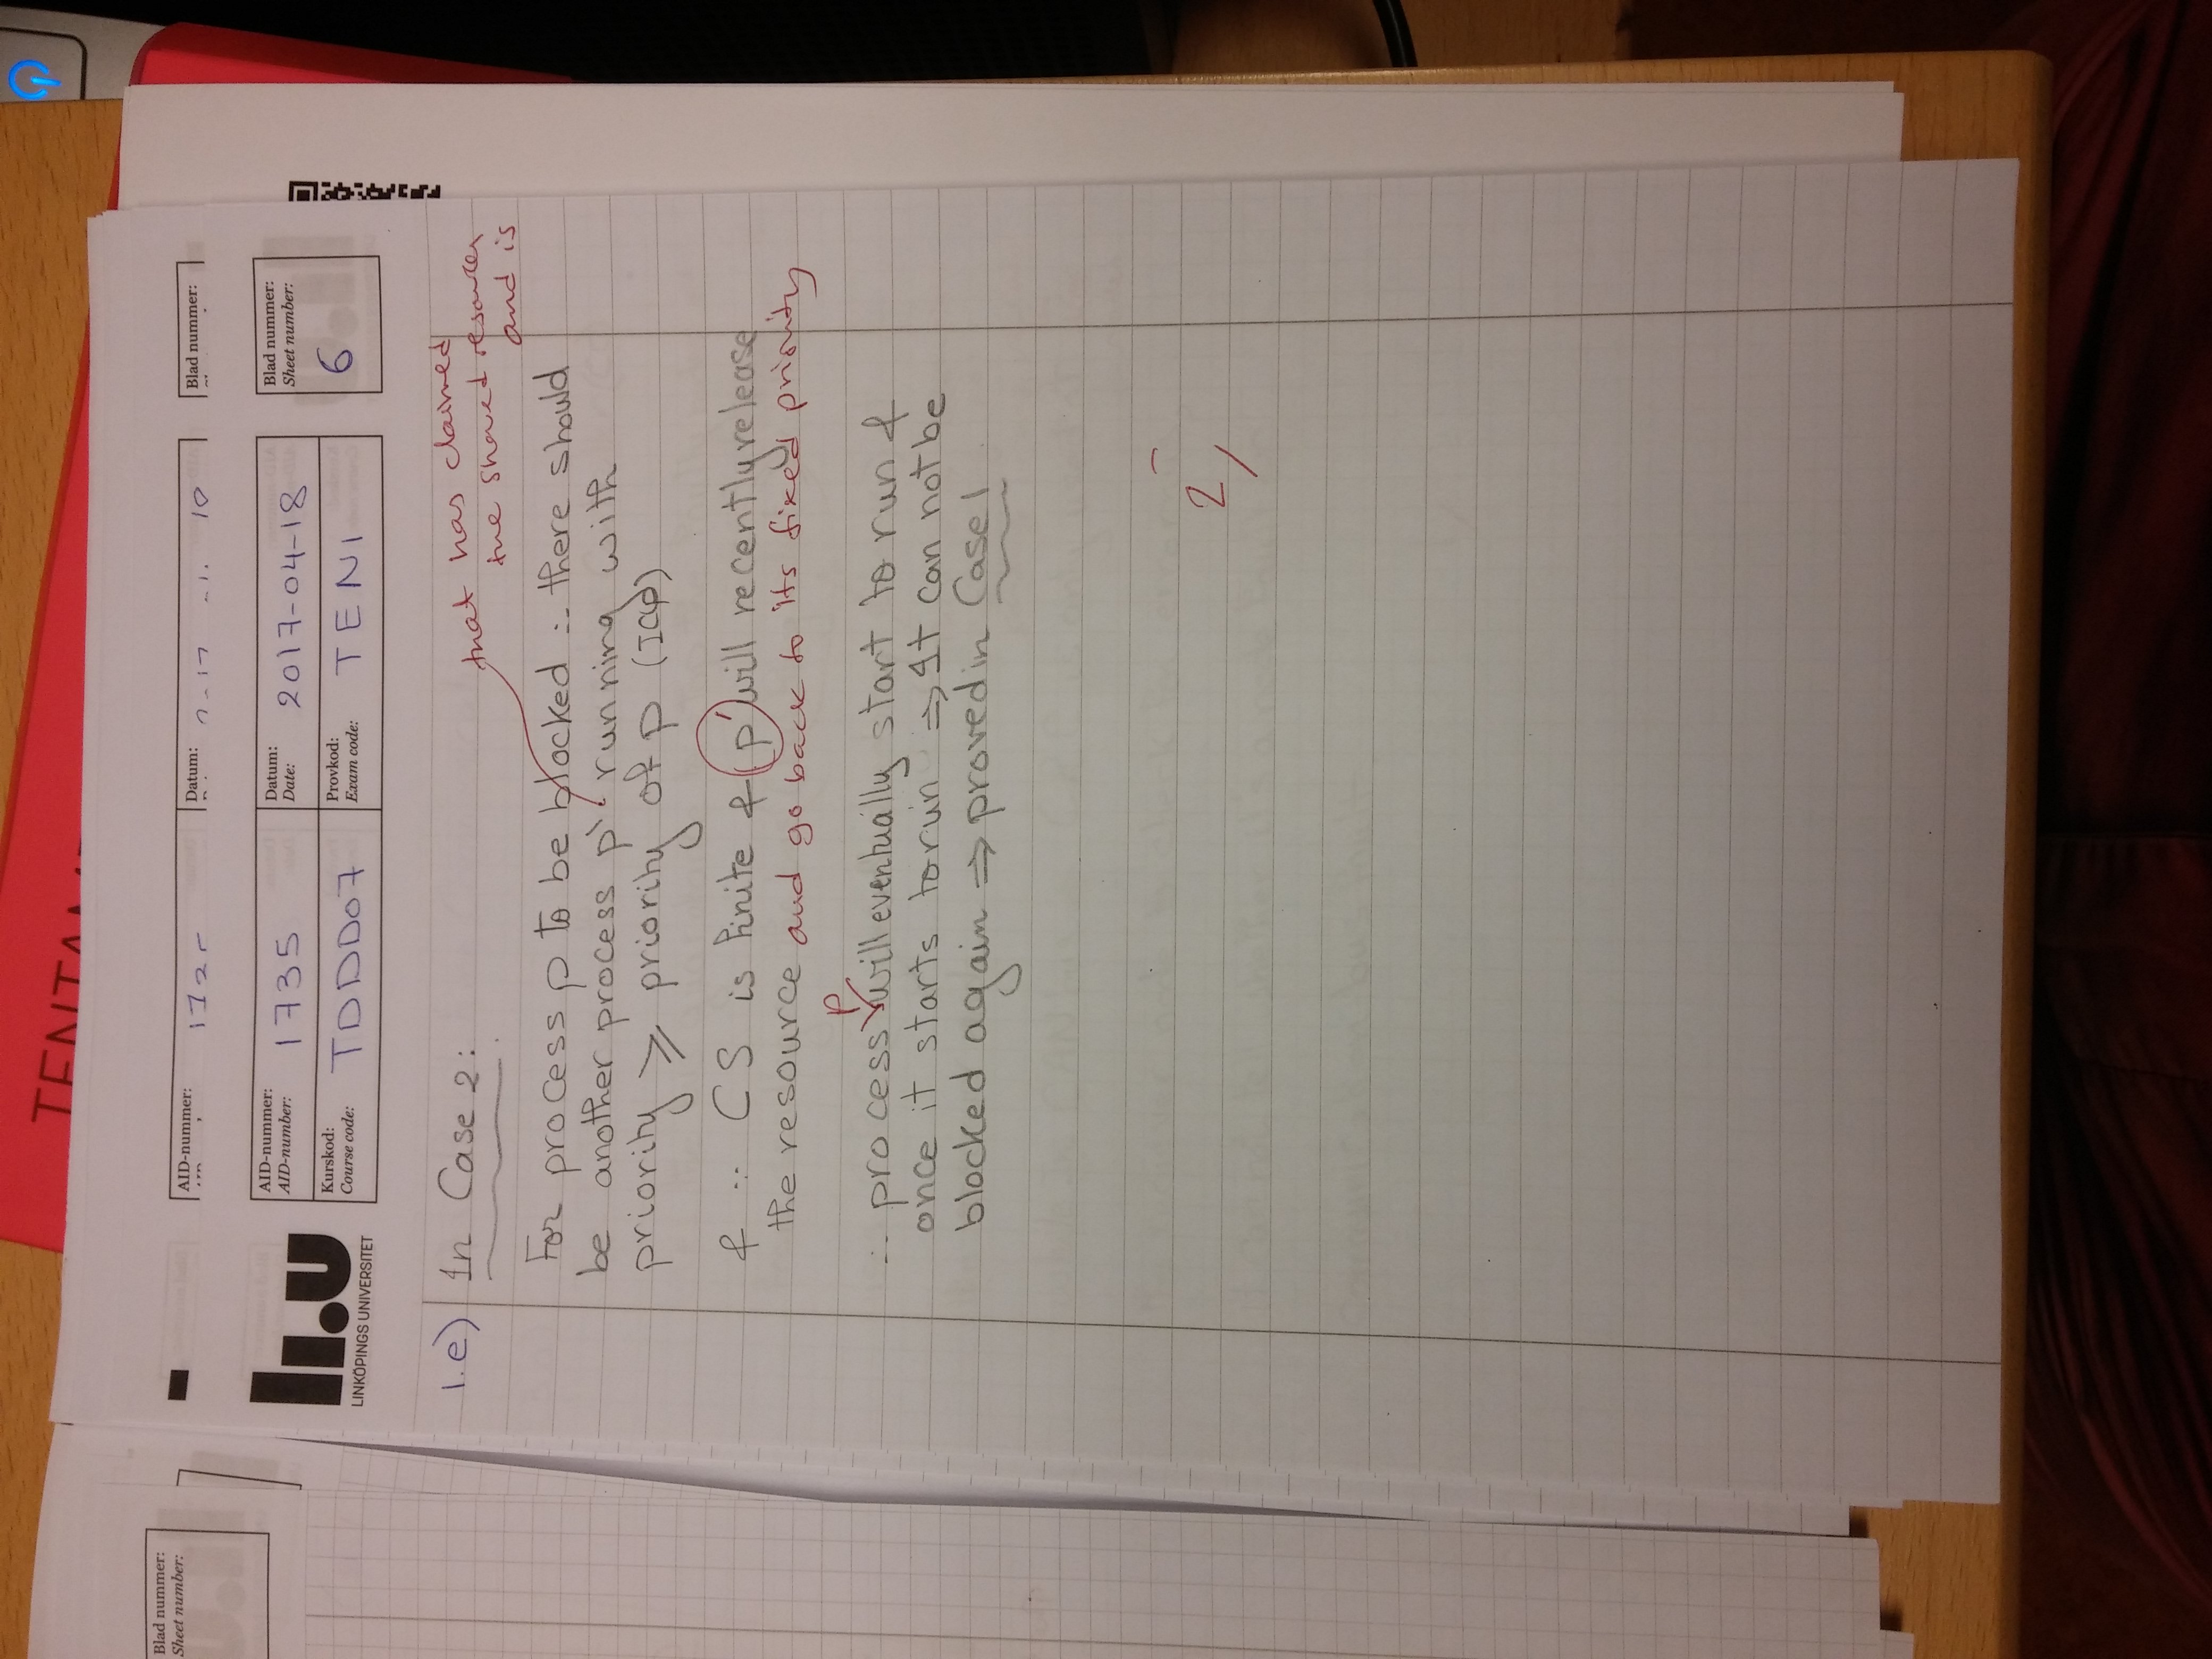 TENTAM
AID-nummer:
Datum:
Blad nummer:
10
AID-nummer:
AID-number:
1735
Datum:
Date:
2017-04-18
Blad nummer:
Sheet number:
6
Kurskod:
Course code:
TDDD07
Provkod:
Exam code:
TEN1
li.u
LINKÖPINGS UNIVERSITET
1.e) In Case 2:
that has claimed
the shared resource
and is
For process p to be blocked ∴ there should
be another process p' running with
priority ⩾ priority of p (ICP)
& ∵ CS is finite & p' will recently release
the resource and go back to its fixed priority
∴ process p will eventually start to run &
once it starts to run ⇒ It can not be
blocked again ⇒ proved in Case 1
2
Blad nummer:
Sheet number: